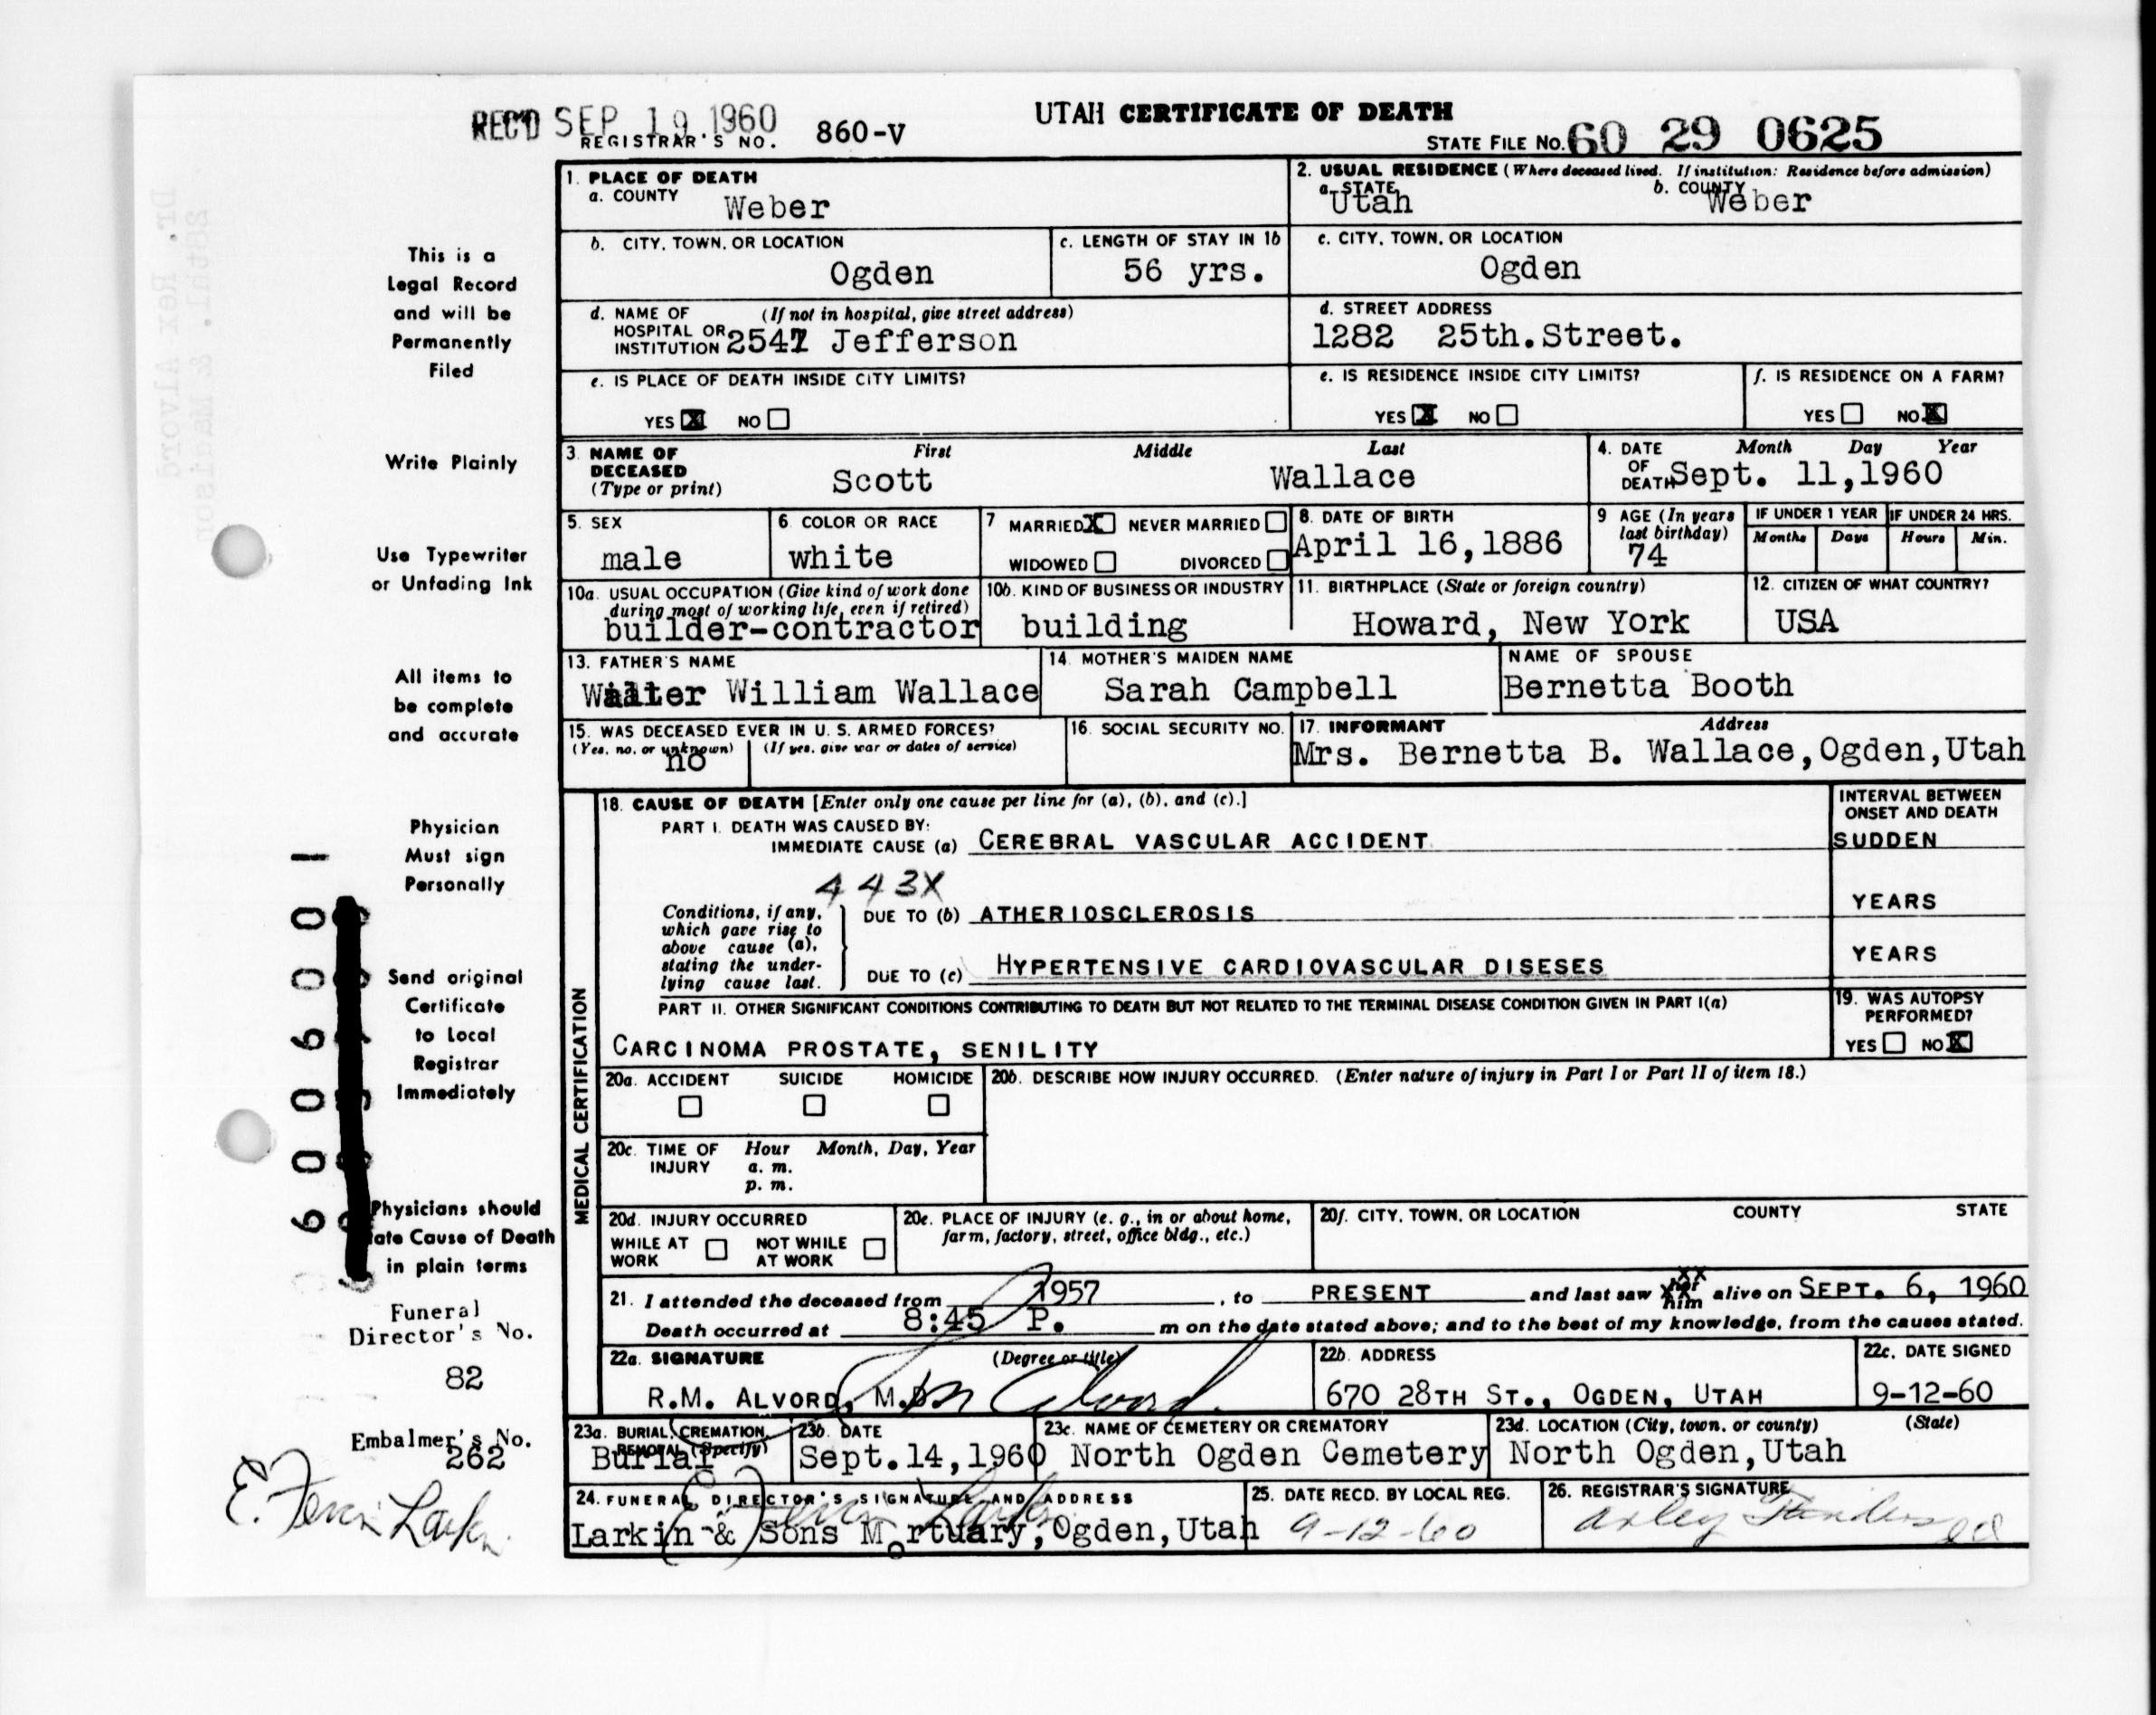 UTAH CERTIFICATE OF DEATH
REC'D SEP 19 1960
REGISTRAR'S NO. 860-V
STATE FILE No. 60 29 0625
This is a
Legal Record
and will be
Permanently
Filed
Write Plainly
Use Typewriter
or Unfading Ink
All items to
be complete
and accurate
Physician
Must sign
Personally
Send original
Certificate
to Local
Registrar
Immediately
Physicians should
ate Cause of Death
in plain terms
Funeral
Director's No.
82
Embalmer's No.
262
E. Larkin
1. PLACE OF DEATH
a. COUNTY
Weber
2. USUAL RESIDENCE (Where deceased lived. If institution: Residence before admission)
a. STATE
Utah
b. COUNTY
Weber
b. CITY, TOWN, OR LOCATION
Ogden
c. LENGTH OF STAY IN 1b
56 yrs.
c. CITY, TOWN, OR LOCATION
Ogden
d. NAME OF (If not in hospital, give street address)
HOSPITAL OR
INSTITUTION 2547 Jefferson
d. STREET ADDRESS
1282 25th.Street.
e. IS PLACE OF DEATH INSIDE CITY LIMITS?
YES X NO
e. IS RESIDENCE INSIDE CITY LIMITS?
YES X NO
f. IS RESIDENCE ON A FARM?
YES NO X
3. NAME OF DECEASED
(Type or print)
First Middle Last
Scott Wallace
4. DATE OF DEATH Month Day Year
Sept. 11,1960
5. SEX
male
6. COLOR OR RACE
white
7 MARRIED X NEVER MARRIED
WIDOWED DIVORCED
8. DATE OF BIRTH
April 16,1886
9 AGE (In years last birthday)
74
IF UNDER 1 YEAR
Months Days
IF UNDER 24 HRS.
Hours Min.
10a. USUAL OCCUPATION (Give kind of work done
during most of working life, even if retired)
builder-contractor
10b. KIND OF BUSINESS OR INDUSTRY
building
11. BIRTHPLACE (State or foreign country)
Howard, New York
12. CITIZEN OF WHAT COUNTRY?
USA
13. FATHER'S NAME
William Wallace
14. MOTHER'S MAIDEN NAME
Sarah Campbell
NAME OF SPOUSE
Bernetta Booth
15. WAS DECEASED EVER IN U. S. ARMED FORCES?
(Yes, no, or unknown) (If yes, give war or dates of service)
no
16. SOCIAL SECURITY NO.
17. INFORMANT Address
Mrs. Bernetta B. Wallace,Ogden,Utah
MEDICAL CERTIFICATION
18. CAUSE OF DEATH [Enter only one cause per line for (a), (b), and (c).]
INTERVAL BETWEEN
ONSET AND DEATH
PART I. DEATH WAS CAUSED BY:
IMMEDIATE CAUSE (a) CEREBRAL VASCULAR ACCIDENT
SUDDEN
443X
Conditions, if any,
which gave rise to
above cause (a),
stating the under-
lying cause last.
DUE TO (b) ATHERIOSCLEROSIS
YEARS
DUE TO (c) HYPERTENSIVE CARDIOVASCULAR DISESES
YEARS
PART II. OTHER SIGNIFICANT CONDITIONS CONTRIBUTING TO DEATH BUT NOT RELATED TO THE TERMINAL DISEASE CONDITION GIVEN IN PART I(a)
CARCINOMA PROSTATE, SENILITY
19. WAS AUTOPSY
PERFORMED?
YES NO X
20a. ACCIDENT SUICIDE HOMICIDE
20b. DESCRIBE HOW INJURY OCCURRED. (Enter nature of injury in Part I or Part II of item 18.)
20c. TIME OF INJURY Hour Month, Day, Year
a. m.
p. m.
20d. INJURY OCCURRED
WHILE AT WORK NOT WHILE AT WORK
20e. PLACE OF INJURY (e. g., in or about home,
farm, factory, street, office bldg., etc.)
20f. CITY, TOWN, OR LOCATION COUNTY STATE
21. I attended the deceased from 1957, to PRESENT and last saw her him alive on SEPT. 6, 1960
Death occurred at 8:45 P. m on the date stated above; and to the best of my knowledge, from the causes stated.
22a. SIGNATURE (Degree or title)
R.M. ALVORD, M.D.
22b. ADDRESS
670 28TH ST., OGDEN, UTAH
22c. DATE SIGNED
9-12-60
23a. BURIAL, CREMATION,
REMOVAL (Specify)
Burial
23b. DATE
Sept.14,1960
23c. NAME OF CEMETERY OR CREMATORY
North Ogden Cemetery
23d. LOCATION (City, town, or county) (State)
North Ogden,Utah
24. FUNERAL DIRECTOR'S SIGNATURE AND ADDRESS
Larkin & Sons Mortuary, Ogden,Utah
25. DATE RECD. BY LOCAL REG.
9-12-60
26. REGISTRAR'S SIGNATURE